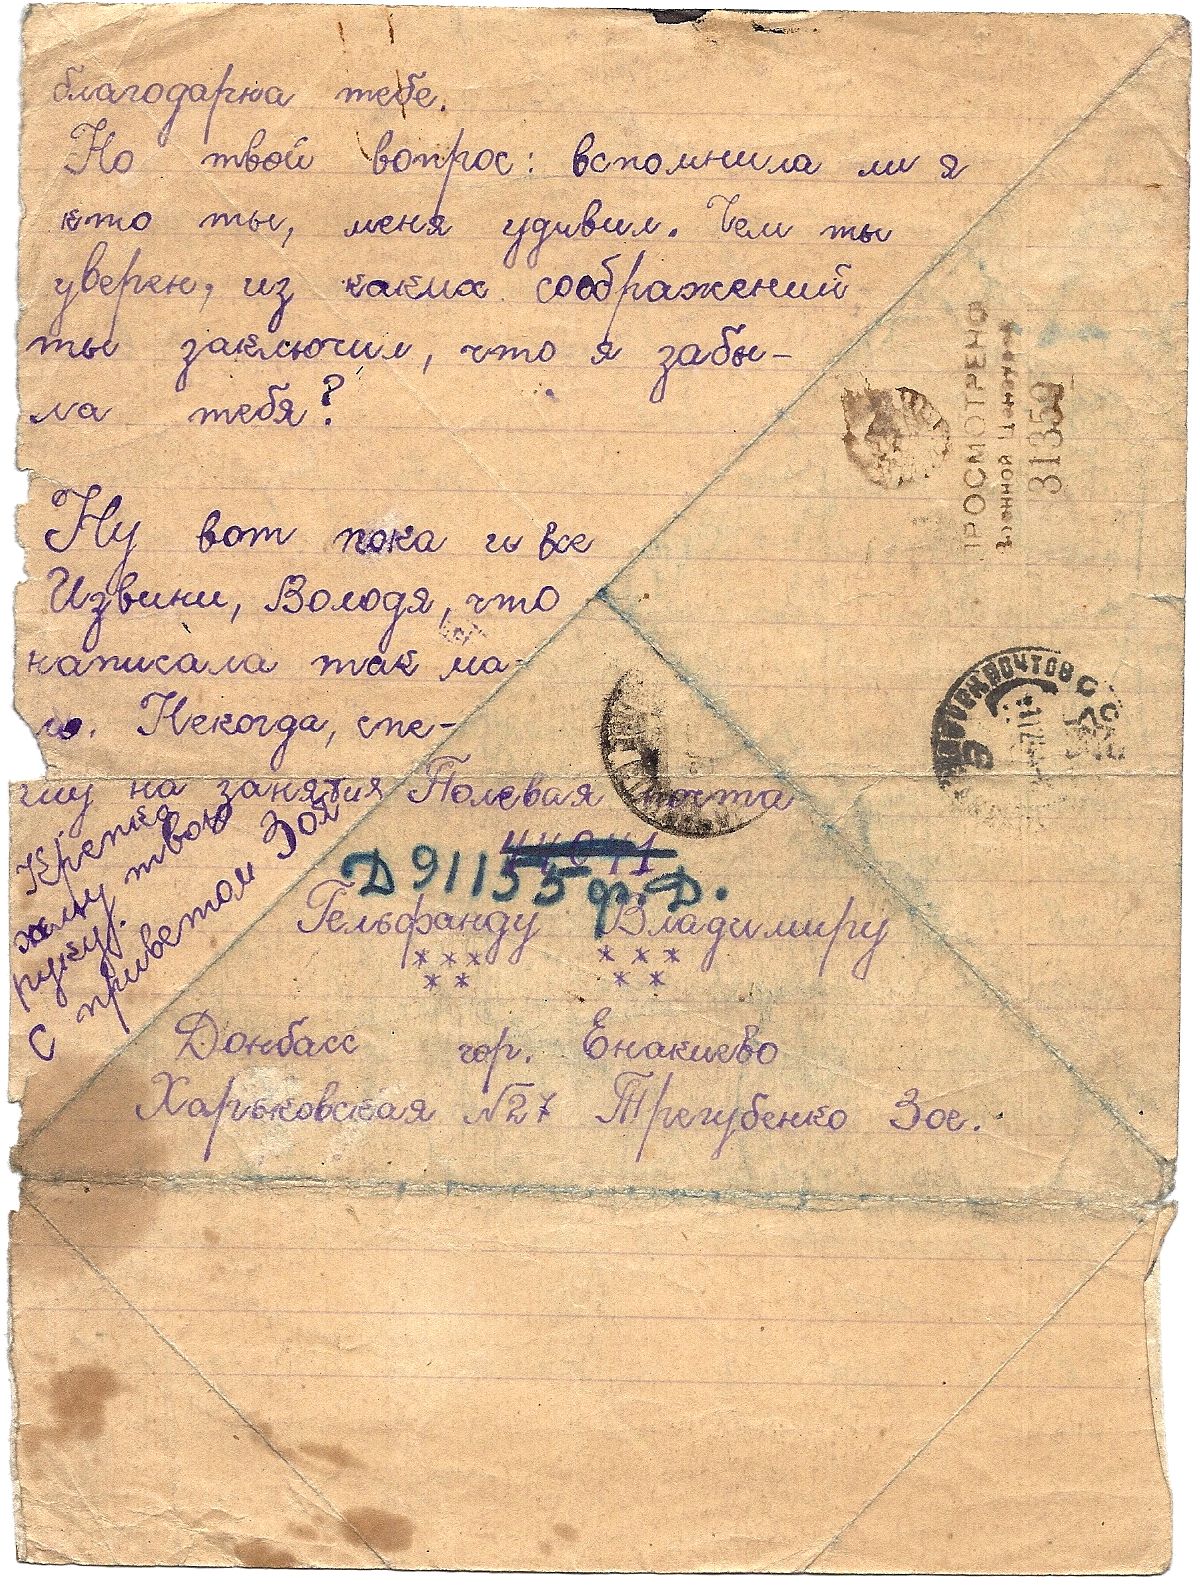 благодарна тебе.
Но твой вопрос: вспомнила ли я
кто ты, меня удивил. Чем ты
уверен, из каких соображений
ты заключил, что я забы-
ла тебя?
Ну вот пока и все
Извини, Володя, что
написала так ма-
ло. Некогда, спе-
шу на занятия
Крепко
жму твою
руку.
С приветом Зоя
Полевая почта
44611
Д 91155 ф. Д.
Гельфанду Владимиру
* * * * * *
* * * *
Донбасс гор. Енакиево
Харьковская №27 Трегубенко Зое.
ПРОСМОТРЕНО
Военной Цензурой
31359